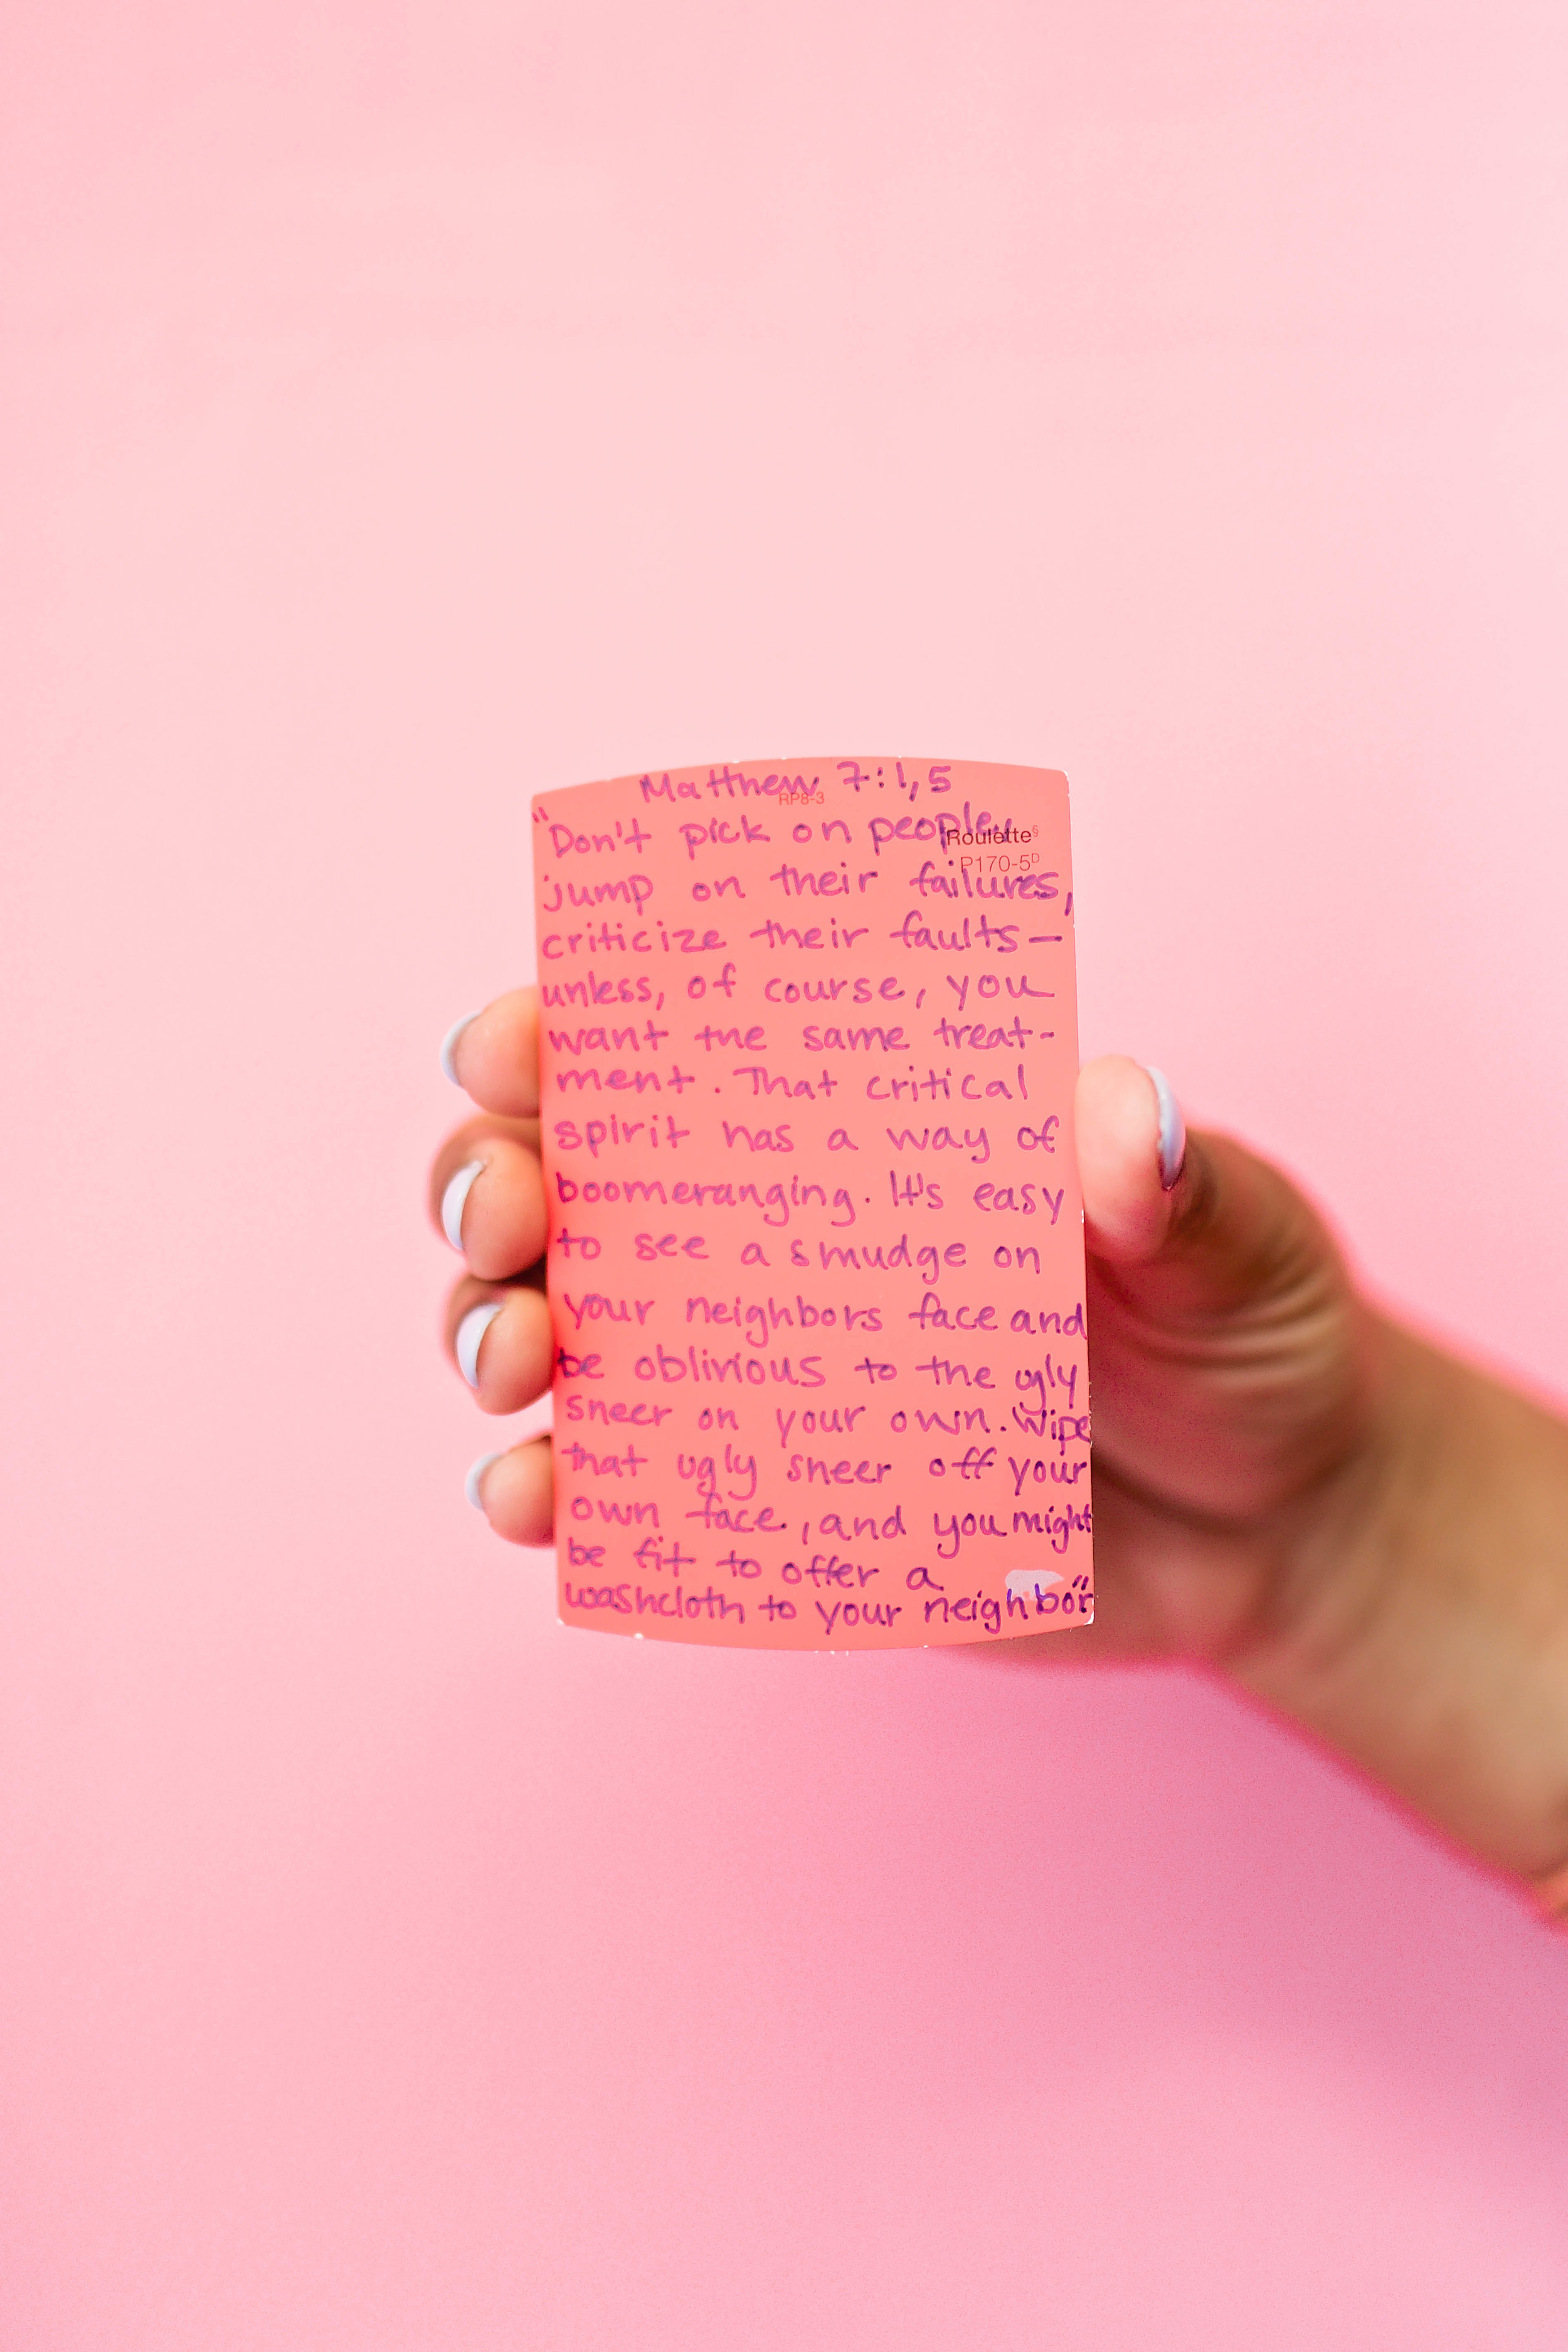 Matthew 7:1,5
RP8-3
"Don't pick on people,
Roulette§
P170-5D
jump on their failures,
criticize their faults—
unless, of course, you
want the same treat-
ment. That critical
spirit has a way of
boomeranging. It's easy
to see a smudge on
your neighbors face and
be oblivious to the ugly
sneer on your own. Wipe
that ugly sneer off your
own face, and you might
be fit to offer a
washcloth to your neighbor."